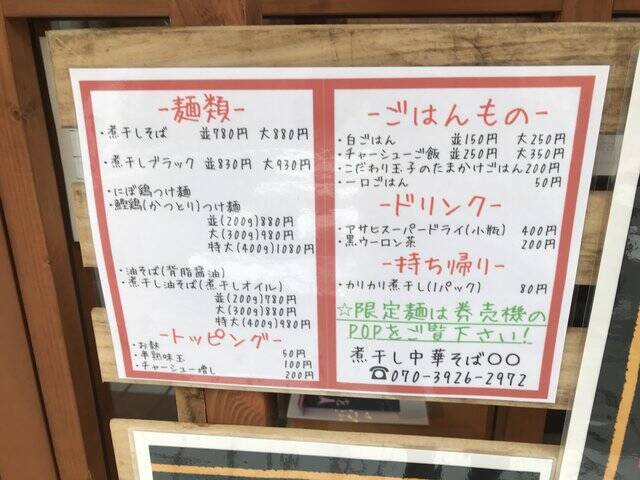 -麺類-
・煮干しそば 並780円 大880円
・煮干しブラック 並830円 大930円
・にぼ鶏つけ麺
・鰹鶏(かつとり)つけ麺
並(200g)880円
大(300g)980円
特大(400g)1080円
・油そば(背脂醤油)
・煮干し油そば(煮干しオイル)
並(200g)780円
大(300g)880円
特大(400g)980円
-トッピング-
・お麩 50円
・半熟味玉 100円
・チャーシュー増し 200円
-ごはんもの-
・白ごはん 並150円 大250円
・チャーシューご飯 並250円 大350円
・こだわり玉子のたまかけごはん200円
・一口ごはん 50円
-ドリンク-
・アサヒスーパードライ(小瓶) 400円
・黒ウーロン茶 200円
-持ち帰り-
・カリカリ煮干し(1パック) 80円
☆限定麺は券売機の
POPをご覧下さい!
煮干し中華そば〇〇
☎070-3926-2972